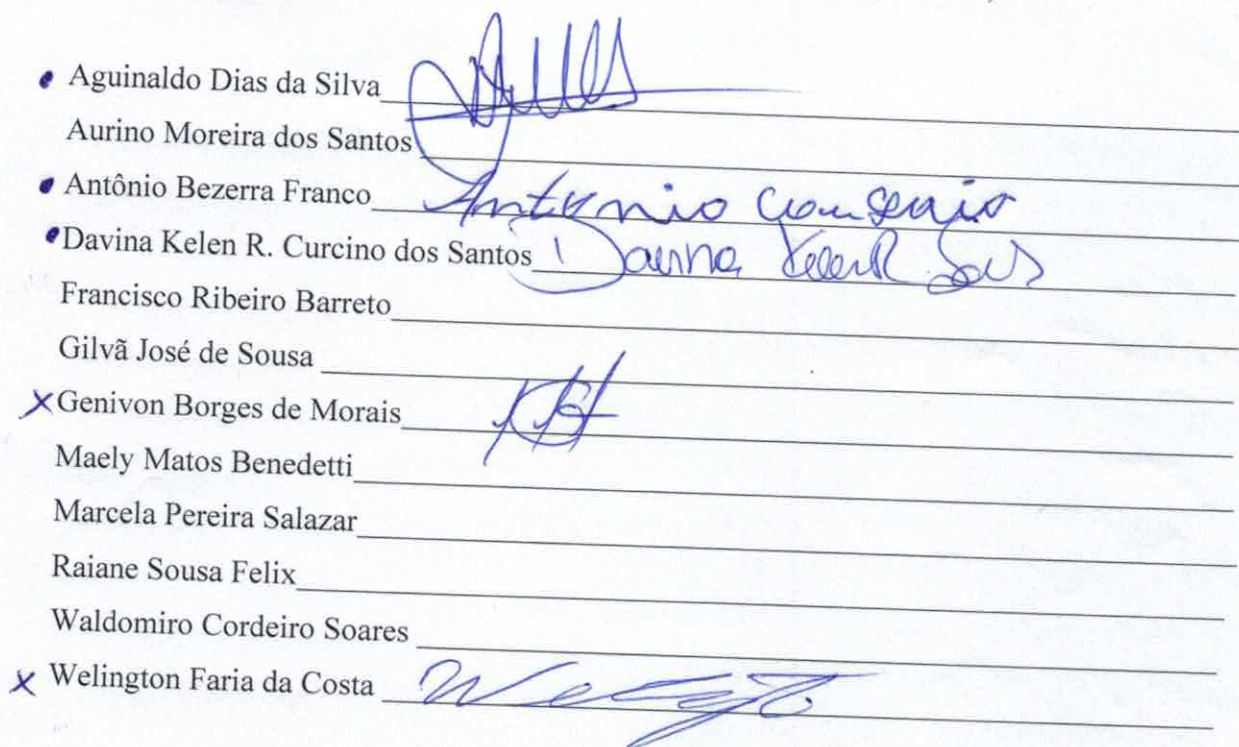 Aguinaldo Dias da Silva
Aurino Moreira dos Santos
Antônio Bezerra Franco Antonio
Davina Kelen R. Curcino dos Santos Davina Kelen R
Francisco Ribeiro Barreto
Gilvã José de Sousa
X Genivon Borges de Morais
Maely Matos Benedetti
Marcela Pereira Salazar
Raiane Sousa Felix
Waldomiro Cordeiro Soares
X Welington Faria da Costa